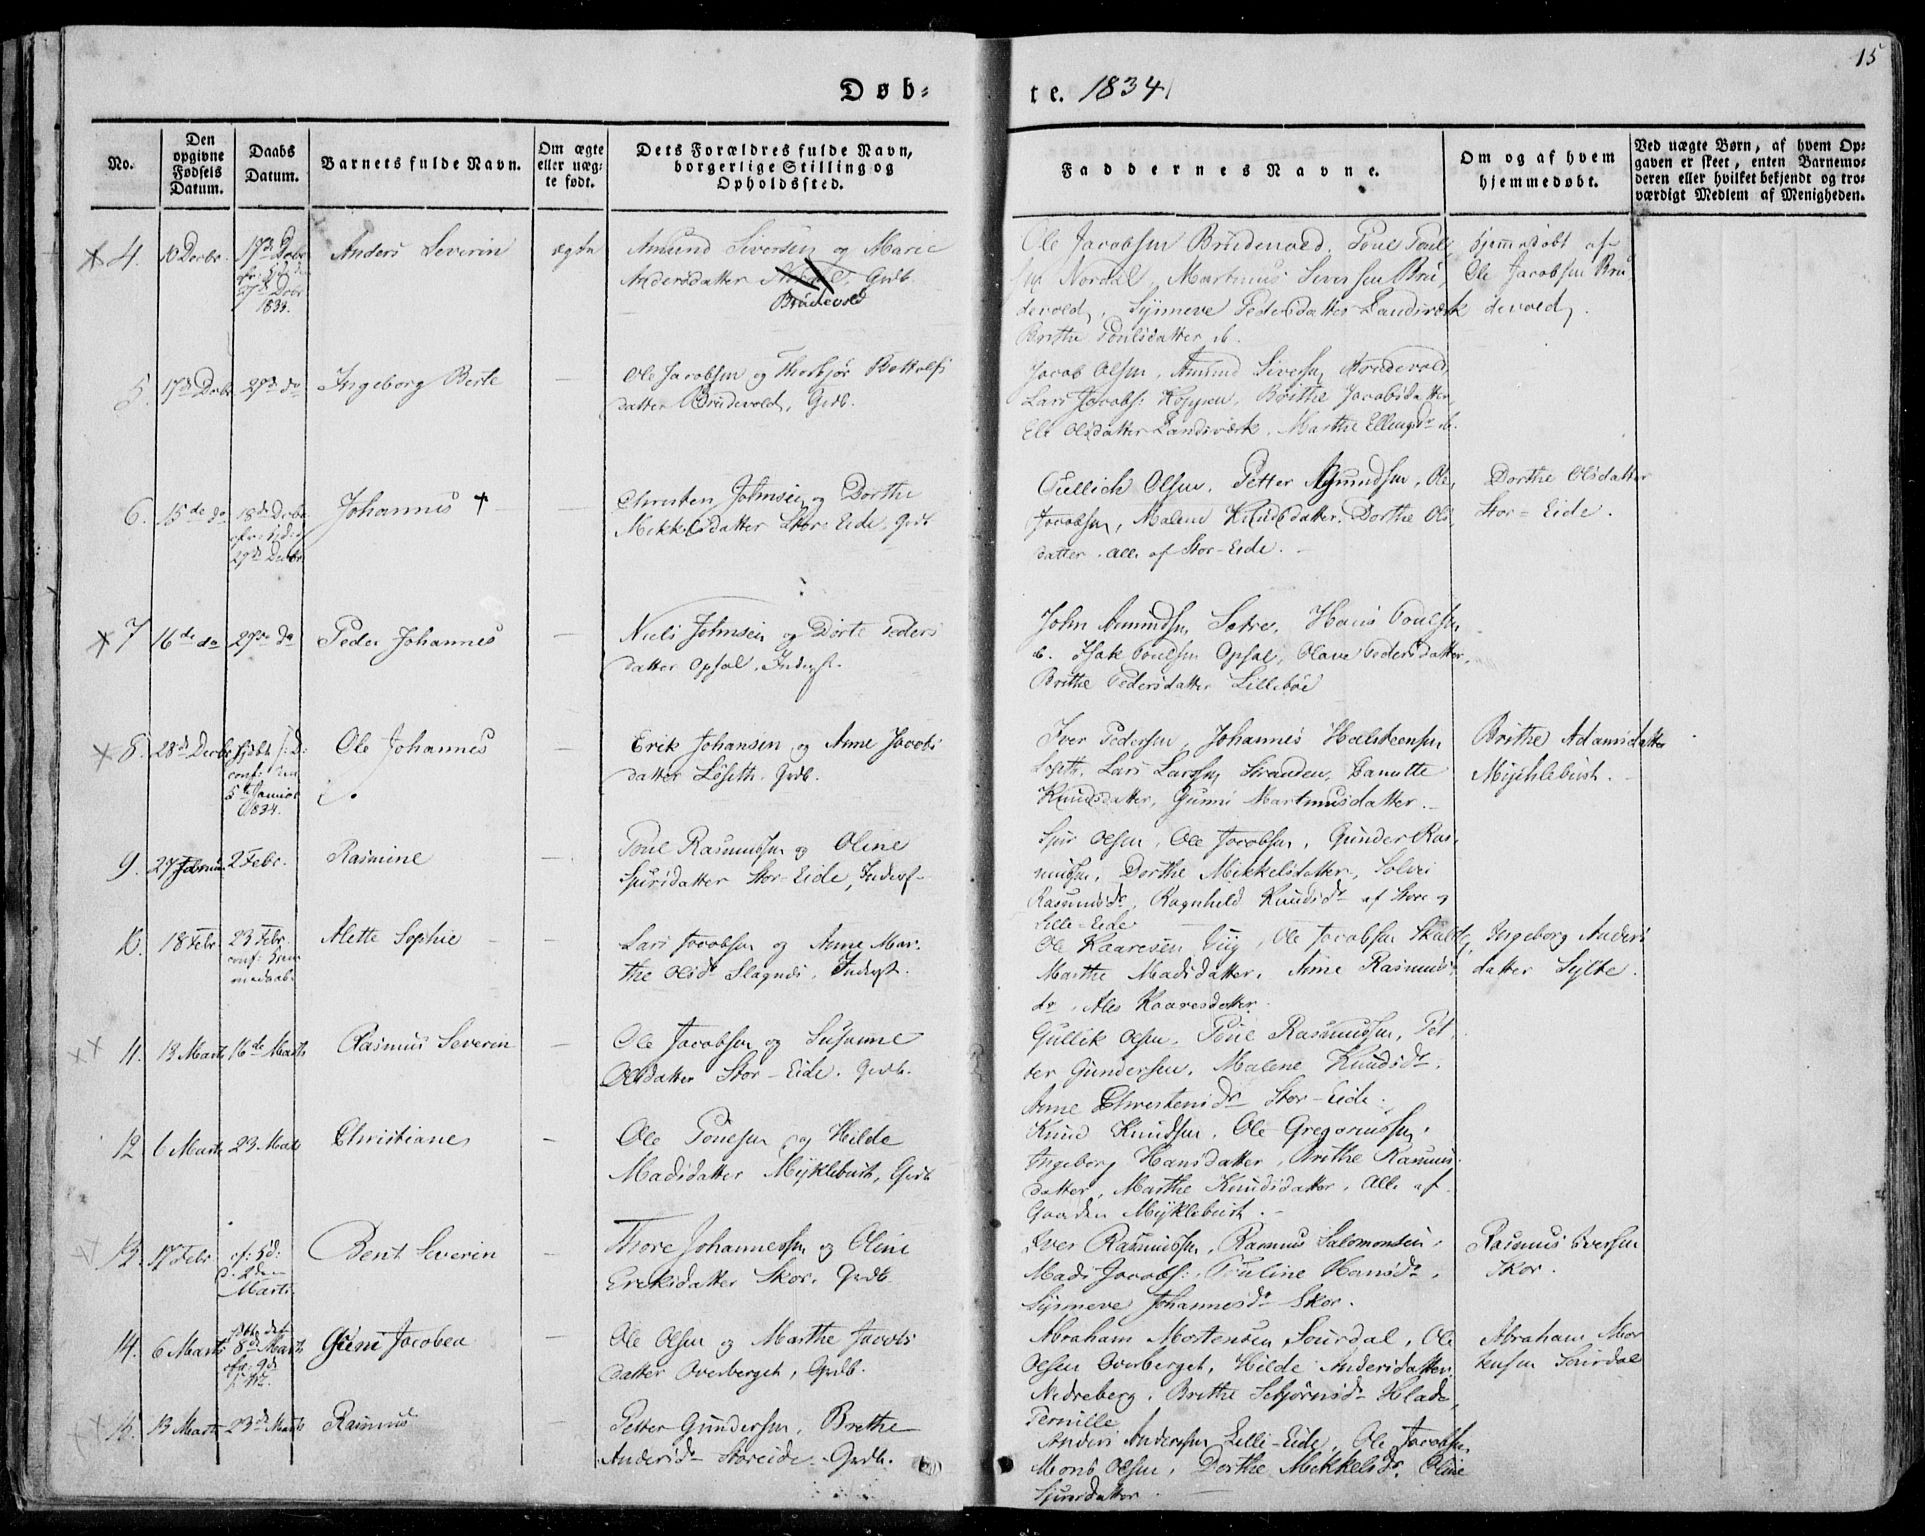 15
Døb-
te. 1834
No.
Den opgivne Fødsels Datum.
Daabs Datum.
Barnets fulde Navn.
Om ægte eller uægte født.
Dets Forældres fulde Navn, borgerlige Stilling og Opholdssted.
Faddernes Navne.
Om og af hvem hjemmedøbt.
Ved uægte Børn, af hvem Opgaven er skeet, enten Barnemoderen eller hvilket bekjendt og troværdigt Medlem af Menigheden.
4. 10 Decbr. 17de Decbr 1833. Anders Severin ægte
Amund Siversen og Marie
Andersdatter Grdb.
Brudevold
Ole Jacobsen Brudevold, Poul Poul
sen Nordal, Martinus Siversen Bru
devold, Synneve Pedersdatter Landsværk
Brithe Poulsdatter ib.
hjemmedøbt af
Ole Jacobsen Bru
devold.
5. 17de Decbr 29de do Ingeborg Berte —
Ole Jacobsen og Thorbjør Bottolfs
datter Brudevold, Grdb.
Jacob Olsen, Amund Siversen Brudevold,
Lars Jacobs: Koppen, Brithe Jacobsdatter
Eli Olsdatter Landsværk, Marthe Ellingsdr ib.
6. 15de do 18de Decbr 29de Decbr Johannes † —
Christen Johnsen og Dorthe
Mikkelsdatter Stor-Eide, Grdb
Gullich Olsen, Petter Gundersen, Ole
Jacobsen, Malene Knudsdatter, Dorthe Ols
datter, alle af Stor-Eide.
Dorthe Olsdatter
Stor-Eide.
7 16de do 29de do Peder Johannes —
Niels Johnsen og Dorte Peders
datter Opsal, Inderst.
John Amundsen Sætre, Hans Poulsen
ib. Isak Poulsen Opsal, Olave Pedersdatter,
Brithe Pedersdatter Lillebøe
8. 28de Decbr conf: den 5te Januar 1834. Ole Johannes —
Erik Johansen og Anne Jacobs
datter Løseth. Grdb.
Iver Pedersen, Johannes Halsteensen
Løseth, Lars Larsen Stranden, Danutte
Knudsdatter, Gunni Martinusdatter.
Brithe Adamsdatter
Myklebust.
9. 27 Januar 2 Febr. Rasmine —
Poul Rasmussen og Oline
Sjursdatter Stor-Eide, Inderst
Sjur Olsen, Ole Jacobsen, Gunder Ras
mussen, Dorthe Mikkelsdatter, Solvei
Rasmusdr, Ragnhild Knudsdr af Store og
Lille-Eide
10. 18 Febr. 23 Febr. conf: hjemmedaab. Alette Sophie —
Lars Jacobsen og Anne Mar
the Olsdr Slagnes, Inderst.
Ole Kaaresen Siig, Ole Jacobsen
Marthe Madsdatter, Anne Rasmus
dr, Ales Kaaresdatter.
Ingeborg Anders
datter Sylte.
11. 13 Marts 16de Marts Rasmus Severin —
Ole Jacobsen og Susanne
Olsdatter Stor-Eide. Grdb.
Gullik Olsen, Poul Rasmussen, Pet
ter Gundersen, Malene Knudsdr.
Anne Christensdr Stor-Eide.
12 6 Marts 23 Marts Christiane —
Ole Poulsen og Hilde
Madsdatter Myklebust, Grdb
Knud Knudsen, Ole Gregoriussen,
Ingeborg Hansdatter, Brithe Rasmus
datter, Marthe Knudsdatter, Alle af
Gaarden Myklebust.
13. 17 Febr Marts. Bent Severin —
Thore Johannessen og Oline
Eriksdatter Skor, Grdb.
Iver Rasmussen, Rasmus Salomonsen,
Mads Jacobs:, Pauline Hansdr,
Synneve Johannesdr Skor.
Rasmus Iversen
Skor.
14. 6 Marts 8de Marts Guni Jacobea —
Ole Olsen og Marthe Jacobs
datter Overberget, Grdb.
Abraham Mortensen Sourdal, Ole
Olsen Overberget, Hilde Andersdatter
Nedreberg, Brithe Hlade,
Pernille
Abraham Mor
tensen Sourdal
15. 13 Marts 23de Marts Rasmus —
Petter Gundersen, Brethe
Andersdr Storeide, Grdb.
Anders Andersen Lille-Eide, Ole Jacobsen
Mons Olsen, Dorthe Mikkelsdr, Oline
Sjursdatter